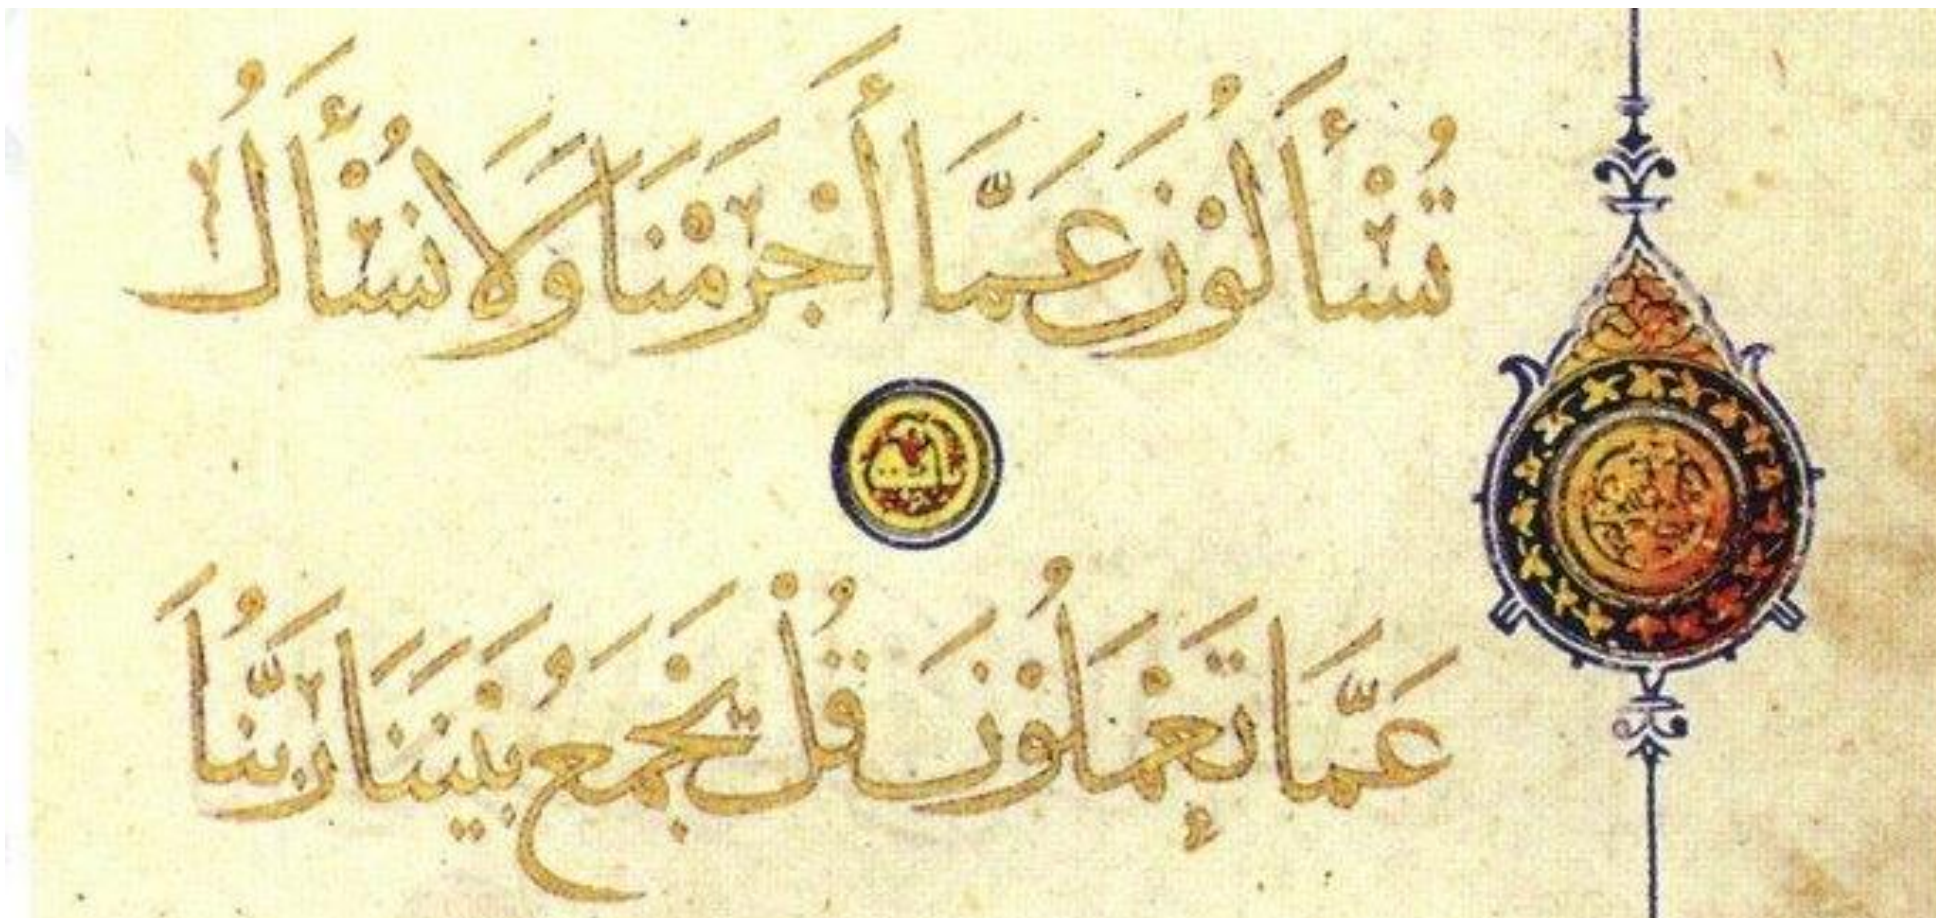 تُسْأَلُونَ عَمَّا أَجْرَمْنَا وَلَا نُسْأَلُ
عَمَّا تَعْمَلُونَ قُلْ يَجْمَعُ بَيْنَنَا رَبُّنَا